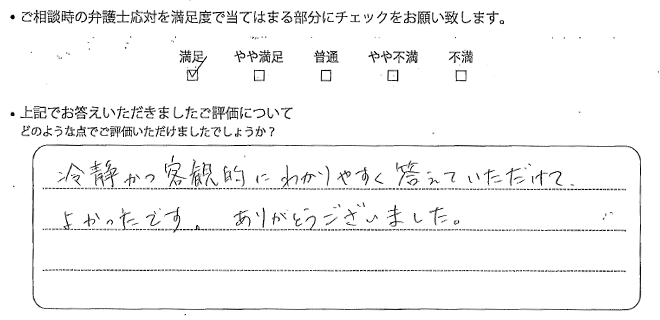 • ご相談時の弁護士応対を満足度で当てはまる部分にチェックをお願い致します。
満足 やや満足 普通 やや不満 不満
☑ ☐ ☐ ☐ ☐
• 上記でお答えいただきましたご評価について
どのような点でご評価いただけましたでしょうか？
冷静かつ客観的にわかりやすく答えていただけて、
よかったです。ありがとうございました。